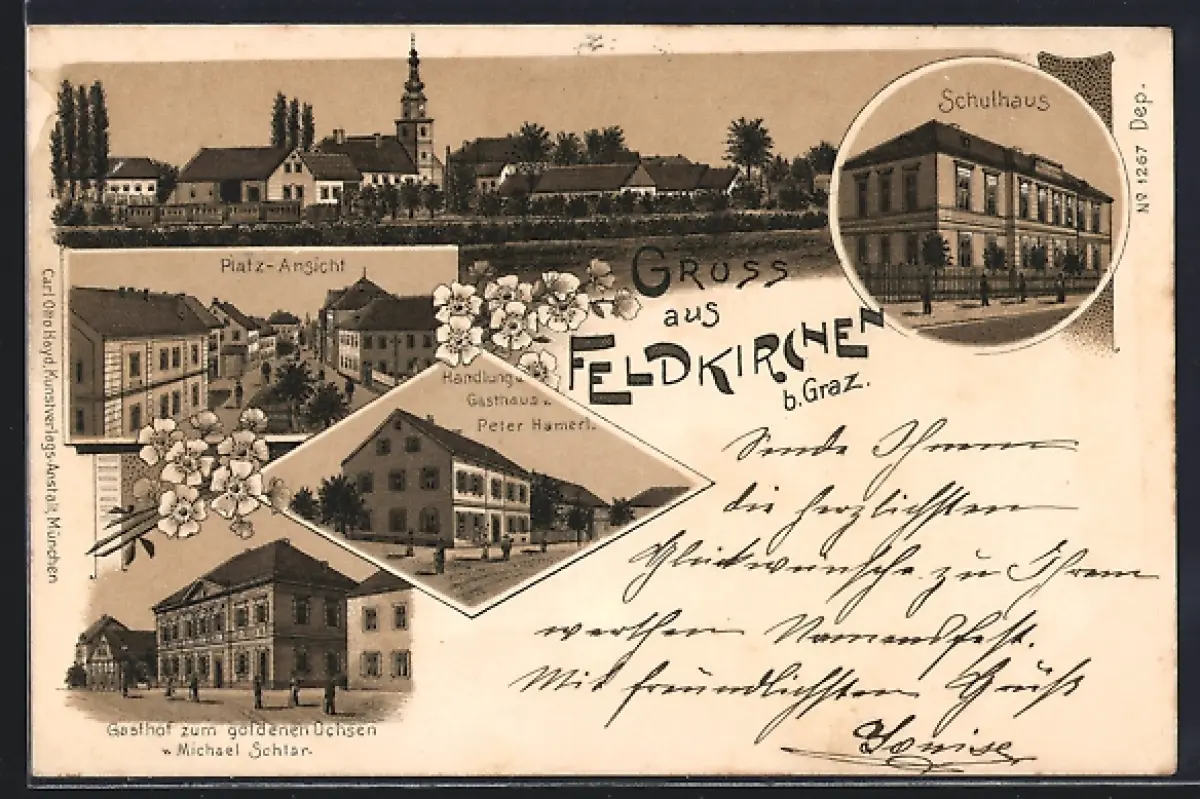 Schulhaus
Nº 1267 Dep.
Platz-Ansicht
Gruss
aus
Feldkirchen
b. Graz.
Handlung u.
Gasthaus v.
Peter Hamerl.
Carl Otto Hayd, Kunstverlags-Anstalt, München
Gasthof zum goldenen Ochsen
v. Michael Schlar.
Sende Ihnen
die herzlichsten
Glückwünsche zu Ihrem
werthen Namensfest.
Mit freundlichsten Gruß
Louise